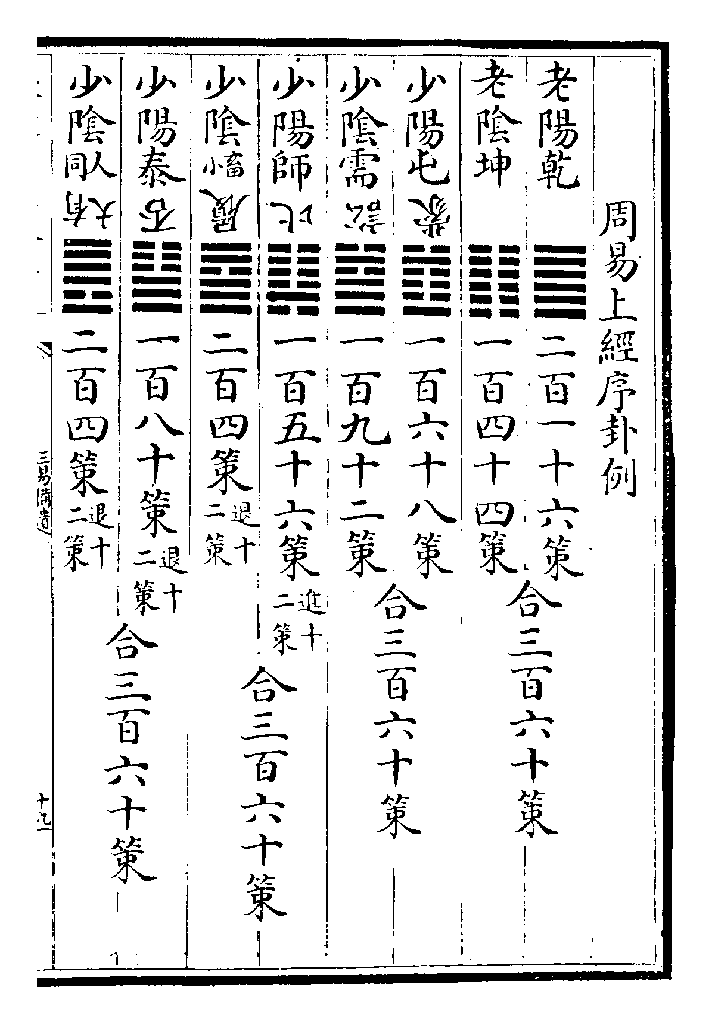 周易上經序卦例
老陽乾 二百一十六策
老陰坤 一百四十四策
合三百六十策
少陽屯蒙 一百六十八策
少陰需訟 一百九十二策
合三百六十策
少陽師比 一百五十六策 進十二策
少陰小畜履 二百四策 退十二策
合三百六十策
少陽泰否 一百八十策 退十二策
少陰同人大有 二百四策 退十二策
合三百六十策
三易備遺
十九